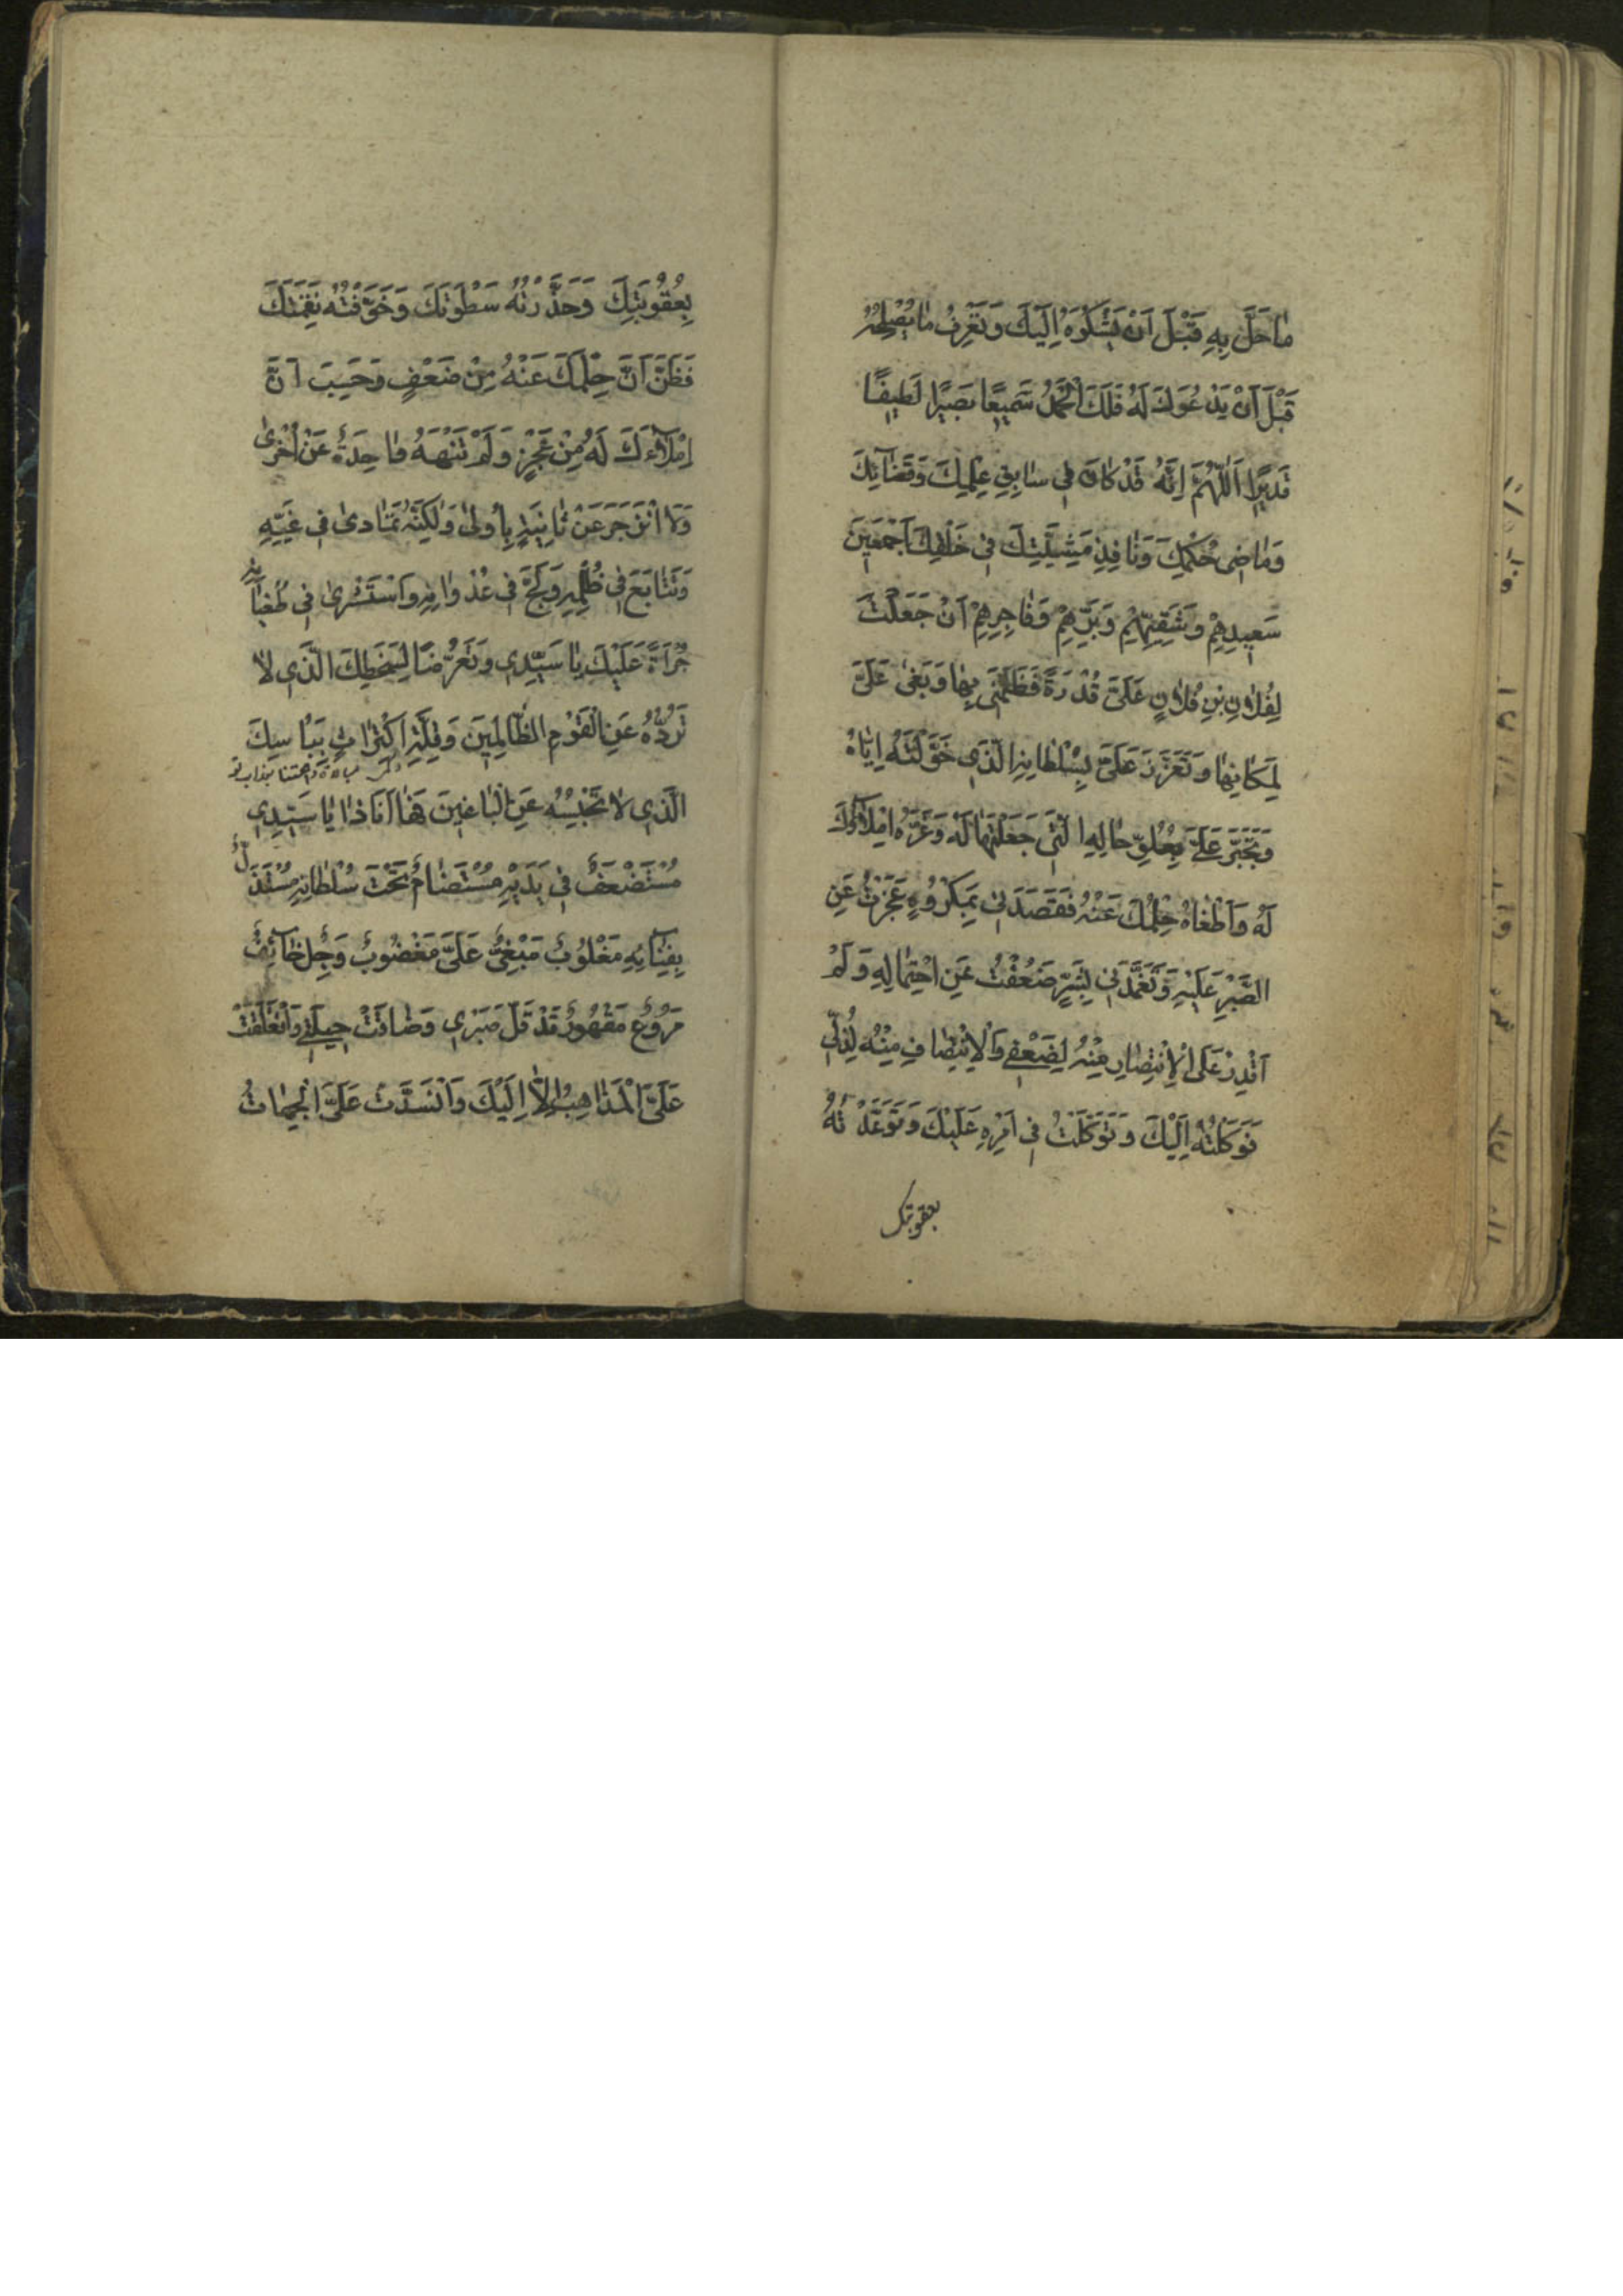 مٰا حَلَّ بِهِ قَبْلَ اَنْ يَشْكُوَهُ اِلَيْكَ وَتَعْرِفُ مٰا يُصْلِحُهُ
قَبْلَ اَنْ يَدْعُوَكَ لَهُ فَلَكَ الْحَمْدُ سَميعًا بَصيرًا لَطيفًا
قَديرًا اَللّٰهُمَّ اِنَّهُ قَدْ كٰانَ فى سٰابِقِ عِلْمِكَ وَقَضٰآئِكَ
وَمٰاضى حُكْمِكَ وَنٰافِذِ مَشِيَّتِكَ فى خَلْقِكَ اَجْمَعينَ
سَعيدِهِمْ وَشَقِيِّهِمْ وَبَرِّهِمْ وَفٰاجِرِهِمْ اَنْ جَعَلْتَ
لِفُلٰانِ بْنِ فُلٰانٍ عَلَىَّ قُدْرَةً فَظَلَمَنى بِهٰا وَبَغىٰ عَلَىَّ
لِمَكٰانِهٰا وَتَعَزَّزَ عَلَىَّ بِسُلْطٰانِهِ الَّذى خَوَّلْتَهُ اِيّٰاهُ
وَتَجَبَّرَ عَلَىَّ بِعُلُوِّ حٰالِهِ الَّتى جَعَلْتَهٰا لَهُ وَغَرَّهُ اِمْلٰاۤؤُكَ
لَهُ وَاَطْغٰاهُ حِلْمُكَ عَنْهُ فَقَصَدَنى بِمَكْرُوهٍ عَجَزْتُ عَنِ
الصَّبْرِ عَلَيْهِ وَتَغَمَّدَنى بِشَرٍّ ضَعُفْتُ عَنِ احْتِمٰالِهِ وَلَمْ
اَقْدِرْ عَلَى الْاِنْتِصٰارِ مِنْهُ لِضَعْفى وَالْاِنْتِصٰافِ مِنْهُ لِذُلّى
فَوَكَلْتُهُ اِلَيْكَ وَتَوَكَّلْتُ فى اَمْرِهِ عَلَيْكَ وَتَوَعَّدْتُهُ
بعقوبتك
بِعُقُوبَتِكَ وَحَذَّرْتُهُ سَطْوَتَكَ وَخَوَّفْتُهُ نِقْمَتَكَ
فَظَنَّ اَنَّ حِلْمَكَ عَنْهُ مِنْ ضَعْفٍ وَحَسِبَ اَنَّ
اِمْلٰاۤءَكَ لَهُ مِنْ عَجْزٍ وَلَمْ تَنْهَهُ وٰاحِدَةٌ عَنْ اُخْرىٰ
وَلَا انْزَجَرَ عَنْ ثٰانِيَةٍ بِاُولىٰ وَلٰكِنَّهُ تَمٰادىٰ فى غَيِّهِ
وَتَتٰابَعَ فى ظُلْمِهِ وَلَجَّ فى عُدْوٰانِهِ وَاسْتَشْرىٰ فى طُغْيٰانِهِ
جُرْاَةً عَلَيْكَ يٰا سَيِّدى وَتَعَرُّضًا لِسَخَطِكَ الَّذى لٰا
تَرُدُّهُ عَنِ الْقَوْمِ الظّٰالِمينَ وَقِلَّةِ اكْتِرٰاثٍ بِبَأْسِكَ
الَّذى لٰا تَحْبِسُهُ عَنِ الْبٰاغينَ فَهٰا اَنَا ذٰا يٰا سَيِّدى
مُسْتَضْعَفٌ فى يَدَيْهِ مُسْتَضٰامٌ تَحْتَ سُلْطٰانِهِ مُسْتَذَلٌّ
بِفِنٰآئِهِ مَغْلُوبٌ مَبْغِىٌّ عَلَىَّ مَغْضُوبٌ وَجِلٌ خٰآئِفٌ
مَرُوعٌ مَقْهُورٌ قَدْ قَلَّ صَبْرى وَضٰاقَتْ حيلَتى وَانْغَلَقَتْ
عَلَىَّ الْمَذٰاهِبُ اِلّٰا اِلَيْكَ وَانْسَدَّتْ عَلَىَّ الْجِهٰاتُ